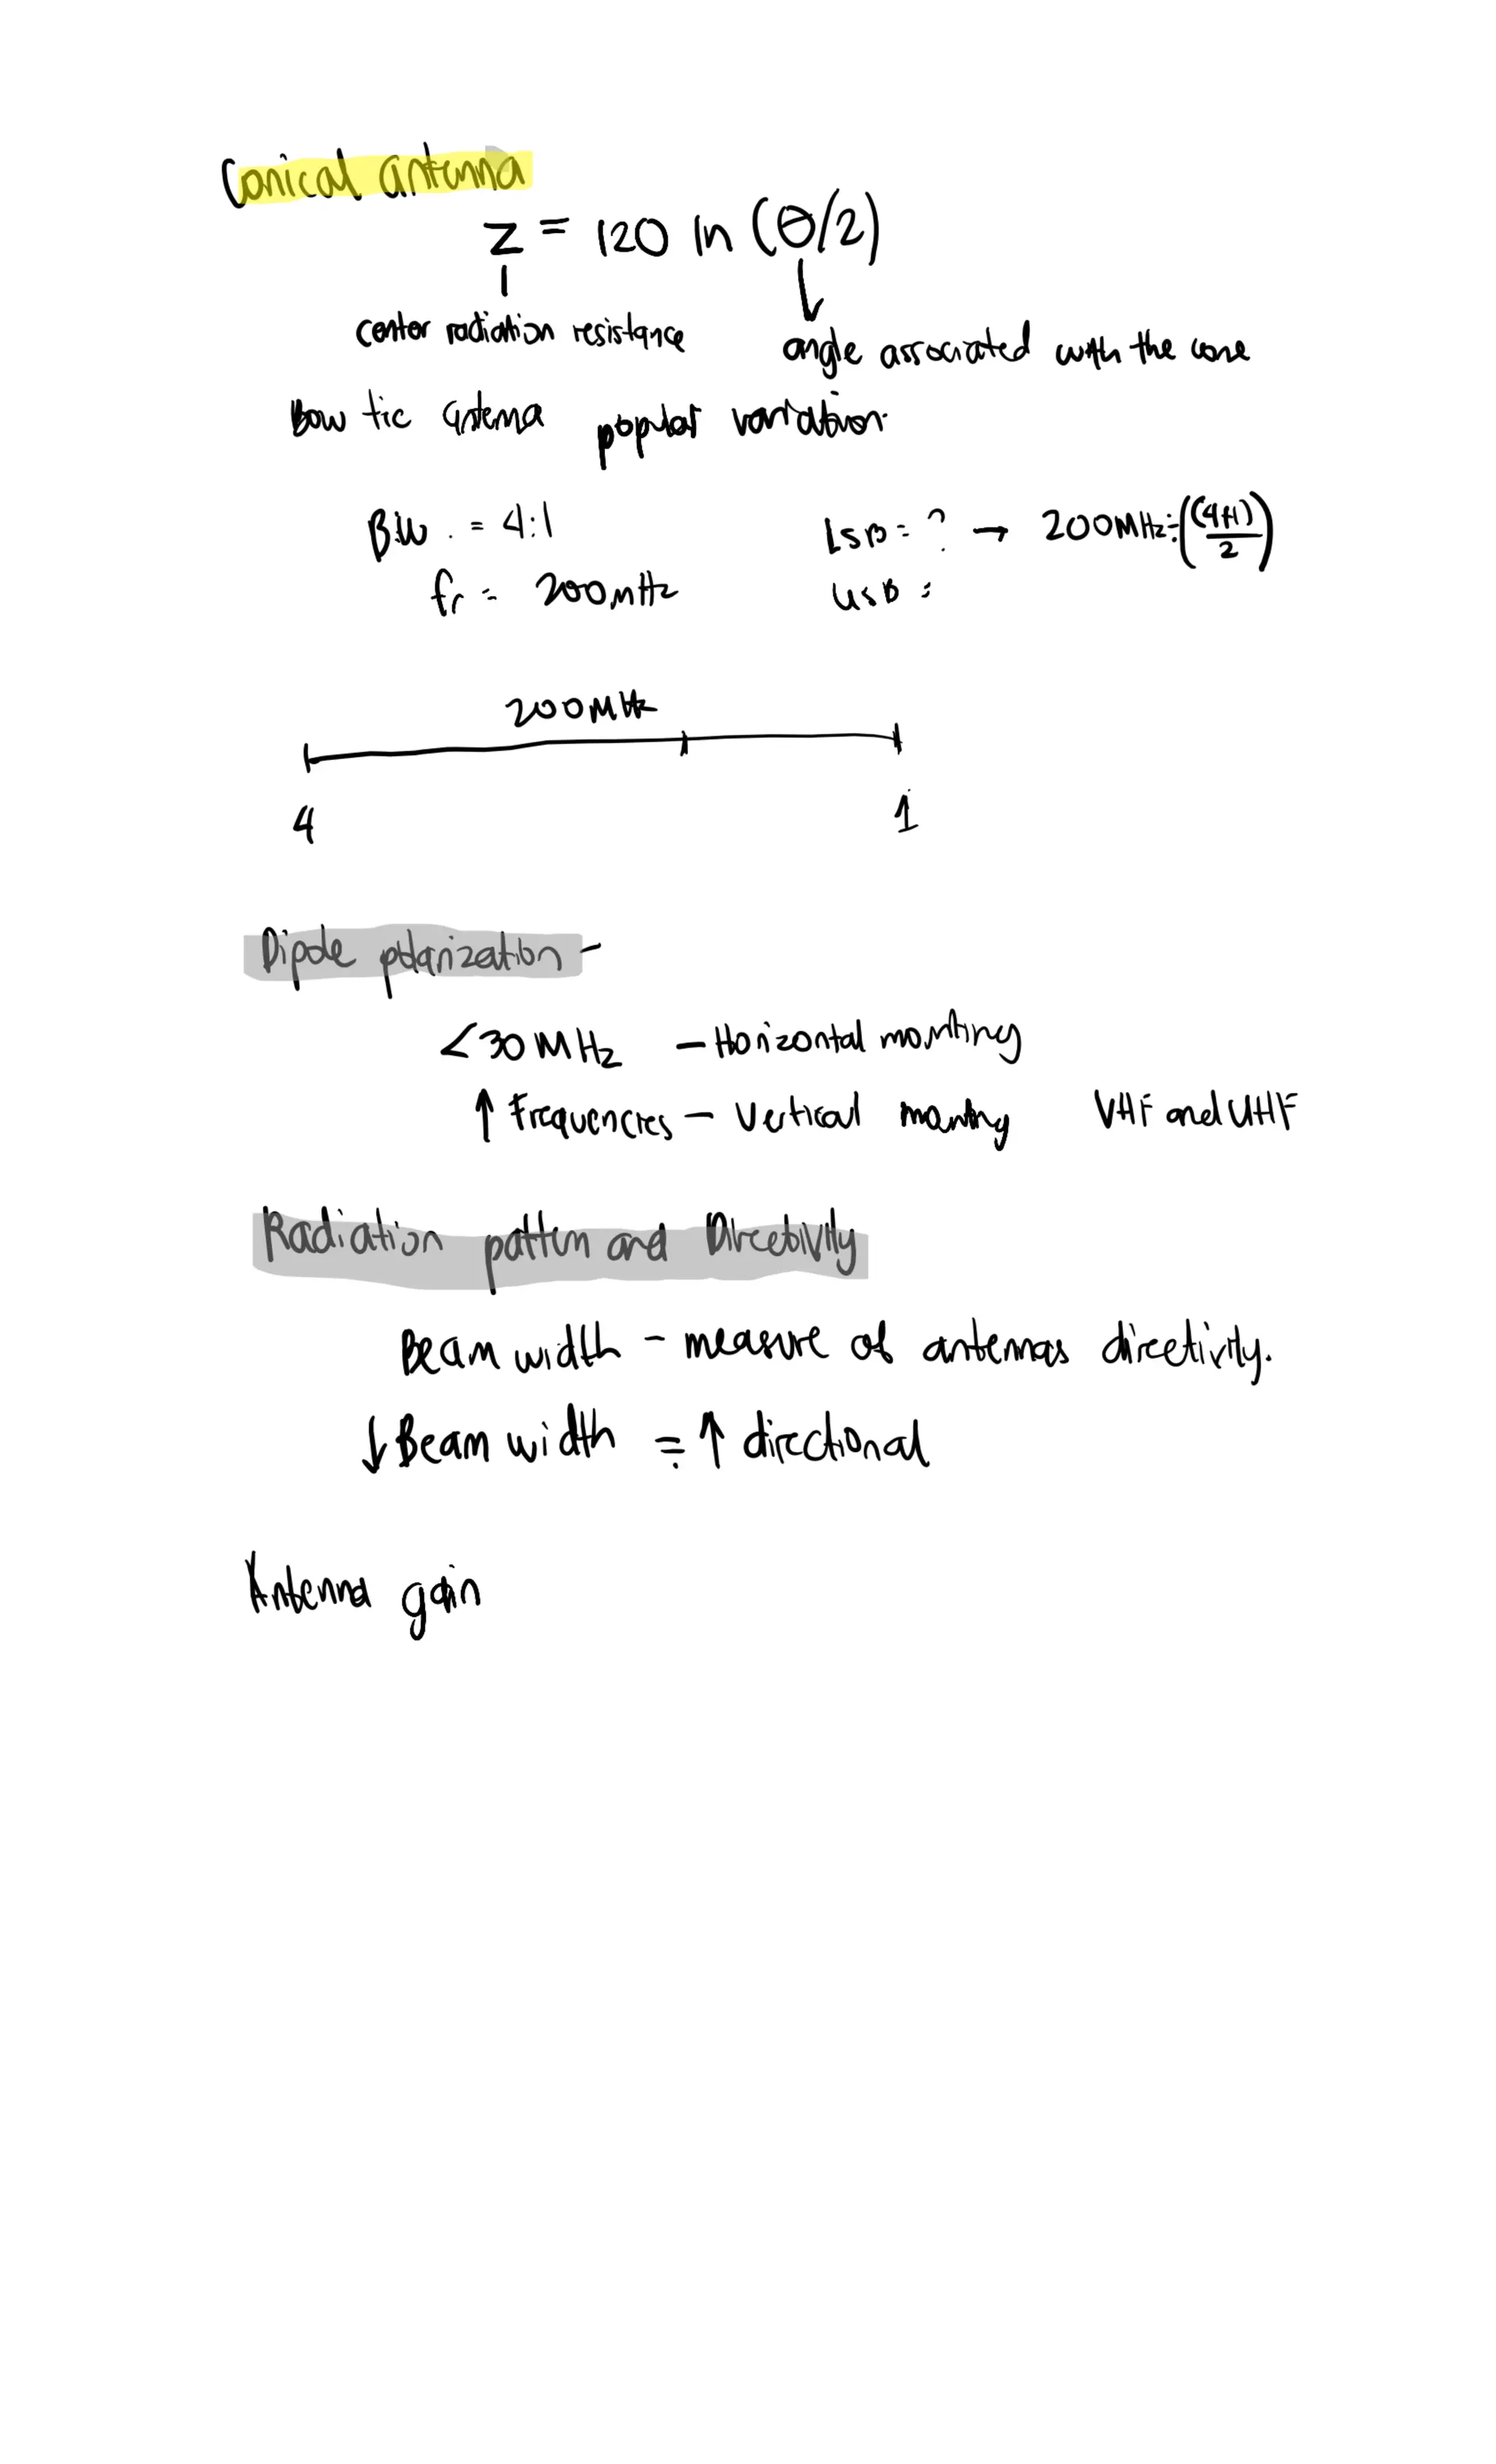 Conical antenna
Z = 120 ln (θ/2)
center radiation resistance
angle associated with the cone
Bow tie antenna popular variation.
B.W. = 4:1
LSB = ? → 200MHz ÷ ((4+1)/2)
fr = 200MHz
USB =
200MHz
4
1
Dipole polarization -
<30 MHz - Horizontal mounting
↑ Frequencies - Vertical mounting VHF and UHF
Radiation pattern and Directivity
Beam width - measure of antennas directivity.
↓ Beam width = ↑ directional
Antenna gain